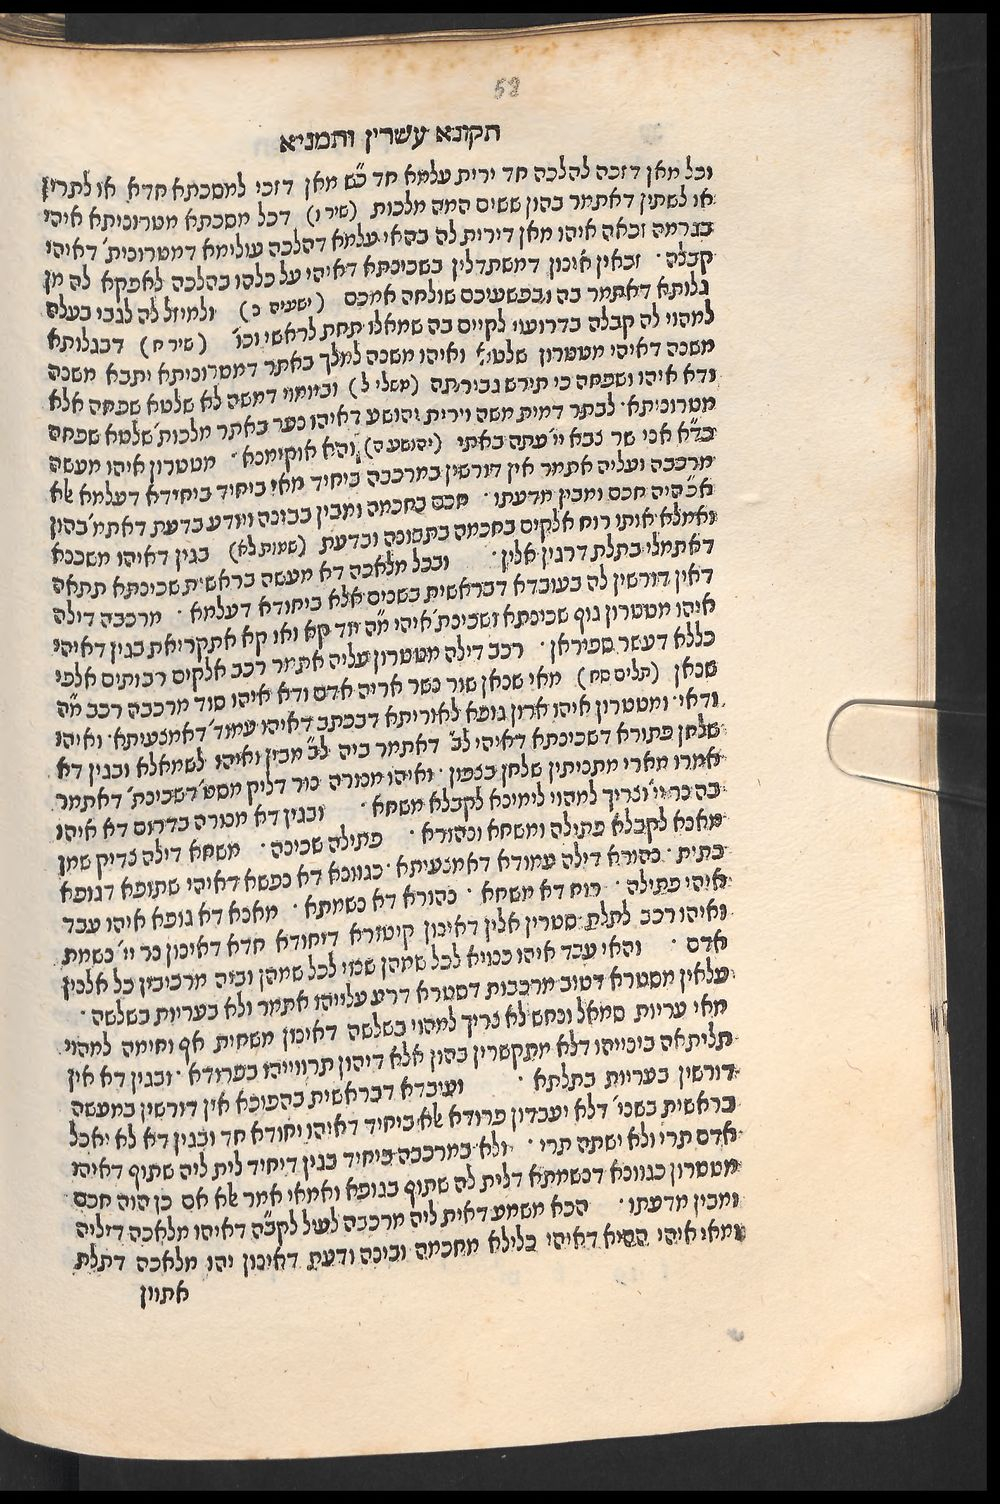 58
תקונא עשרין ותמניא
וכל מאן דזכה להלכה חד ירית עלמא חד כ"ש מאן דזכי למסכתא חדא או לתרין
או לשתין דאתמר בהון ששים המה מלכות (שיר ו) דכל מסכתא מטרוניתא איהי
בגרמה זכאה איהו מאן דירות לה בהאי עלמא דהלכה עולימא דמטרונית' דאיהי
קבלה · זכאין אינון דמשתדלין בשכינתא דאיהי על כלהו בהלכה לאפקא לה מן
גלותא דאתמר בה ובפשעיכם שולחה אמכם (ישעיה נ) ולמיזל לה לגבי בעלה
למהוי לה קבלה בדרועוי לקיים בה שמאלו תחת לראשי וכו' (שיר ח) דבגלותא
משכה דאיהי מטטרון שלטא ואיהו משנה למלך באתר דמטרוניתא יתבא משנה
ודא איהו ושפחה כי תירש גבירתה (משלי ל) וביומוי דמשה לא שלטא שפחה אלא
מטרוניתא · לבתר דמית משה וירית יהושע דאיהו נער באתר מלכות שלטא שפחה
בד"א אני שר צבא יי' עתה באתי (יהושע ה) והא אוקימנא · מטטרון איהו מעשה
מרכבה ועליה אתמר אין דורשין במרכבה ביחיד מאי ביחיד ביחידא דעלמא אלא
א"כ היה חכם ומבין מדעתו · חכם בחכמה ומבין בבינה ויודע בדעת דאתמ' בהון
ואמלא אותו רוח אלקים בחכמה בתבונה ובדעת (שמות לא) בגין דאיהו משכנא
דאתמלי בתלת דרגין אלין · ובכל מלאכה דא מעשה בראשית שכינתא תתאה
דאין דורשין לה בעובדא דבראשית בשנים אלא ביחודא דעלמא · מרכבה דילה
איהו מטטרון גוף שכינתא ושכינת' איהי מ"ה יוד קא ואו קא אתקריאת בגין דאיהי
כללא דעשר ספיראן · רכב דילה מטטרון עליה אתמר רכב אלקים רבותים אלפי
שנאן (תלים סח) מאי שנאן שור נשר אריה אדם ודא איהו סוד מרכבה רכב מ"ה
ודאי · ומטטרון איהו ארון גופא לאוריתא דבכתב דאיהו עמוד' דאמצעיתא · ואיהו
שלחן פתורא דשכינתא דאיהי לב' דאתמר ביה לב מבין ואיהו לשמאלא ובגין דא
אמרו מארי מתניתין שלחן בצפון · ואיהו מנורה נור דליק מסט' דשכינת' דאתמר
בה נר יי' וצריך למהוי לימינא לקבלא משחא · ובגין דא מנורה בדרום דא איהו
מאנא לקבלא פתילה ומשחא ונהורא · פתילה שכינה · משחא דילה צדיק שמן
כתית · נהורא דילה עמודא דאמצעיתא · כגוונא דא נפשא דאיהי שתופא דגופא
איהי פתילה · רוח דא משחא · נהורא דא נשמתא · מאנא דא גופא איהו עבד
ואיהו רכב לתלת סטרין אלין דאינון קיטורא דיחודא חדא דאינון נר יי' נשמת
אדם · והאי עבד איהו כנויא לכל שמהן שנוי לכל שמהן וביה מרכיבין כל אלנין
עלאין מסטרא דטוב מרכבות דסטרא דרע עלייהו אתמר ולא בעריות בשלשה ·
מאי עריות סמאל ונחש לא צריך למהוי בשלשה דאינון משחית אף וחימה למהוי
תליתאה ביניהו דלא מתקשרין בהון אלא דיהון תרווייהו בפרודא · ובגין דא אין
דורשין בעריות בתלתא · ועובדא דבראשית בהפוכא אין דורשין במעשה
בראשית בשני' דלא יעבדון פרודא אלא ביחיד דאיהו יחודא חד ובגין דא לא יאכל
אדם תרי ולא ישתה תרי · ולא במרכבה ביחיד בגין דיחיד לית ליה שתוף דאיהו
מטטרון כגוונא דנשמתא דלית לה שתוף בגופא ואמאי אמר אלא אם כן הוה חכם
ומבין מדעתו · הכא משמע דאית ליה מרכבה לעיל לקב"ה דאיהו מלאכה דיליה
ומאי איהו ההיא דאיהי כלילא מחכמה ובינה ודעת דאינון יהו מלאכה דתלת
אתוון